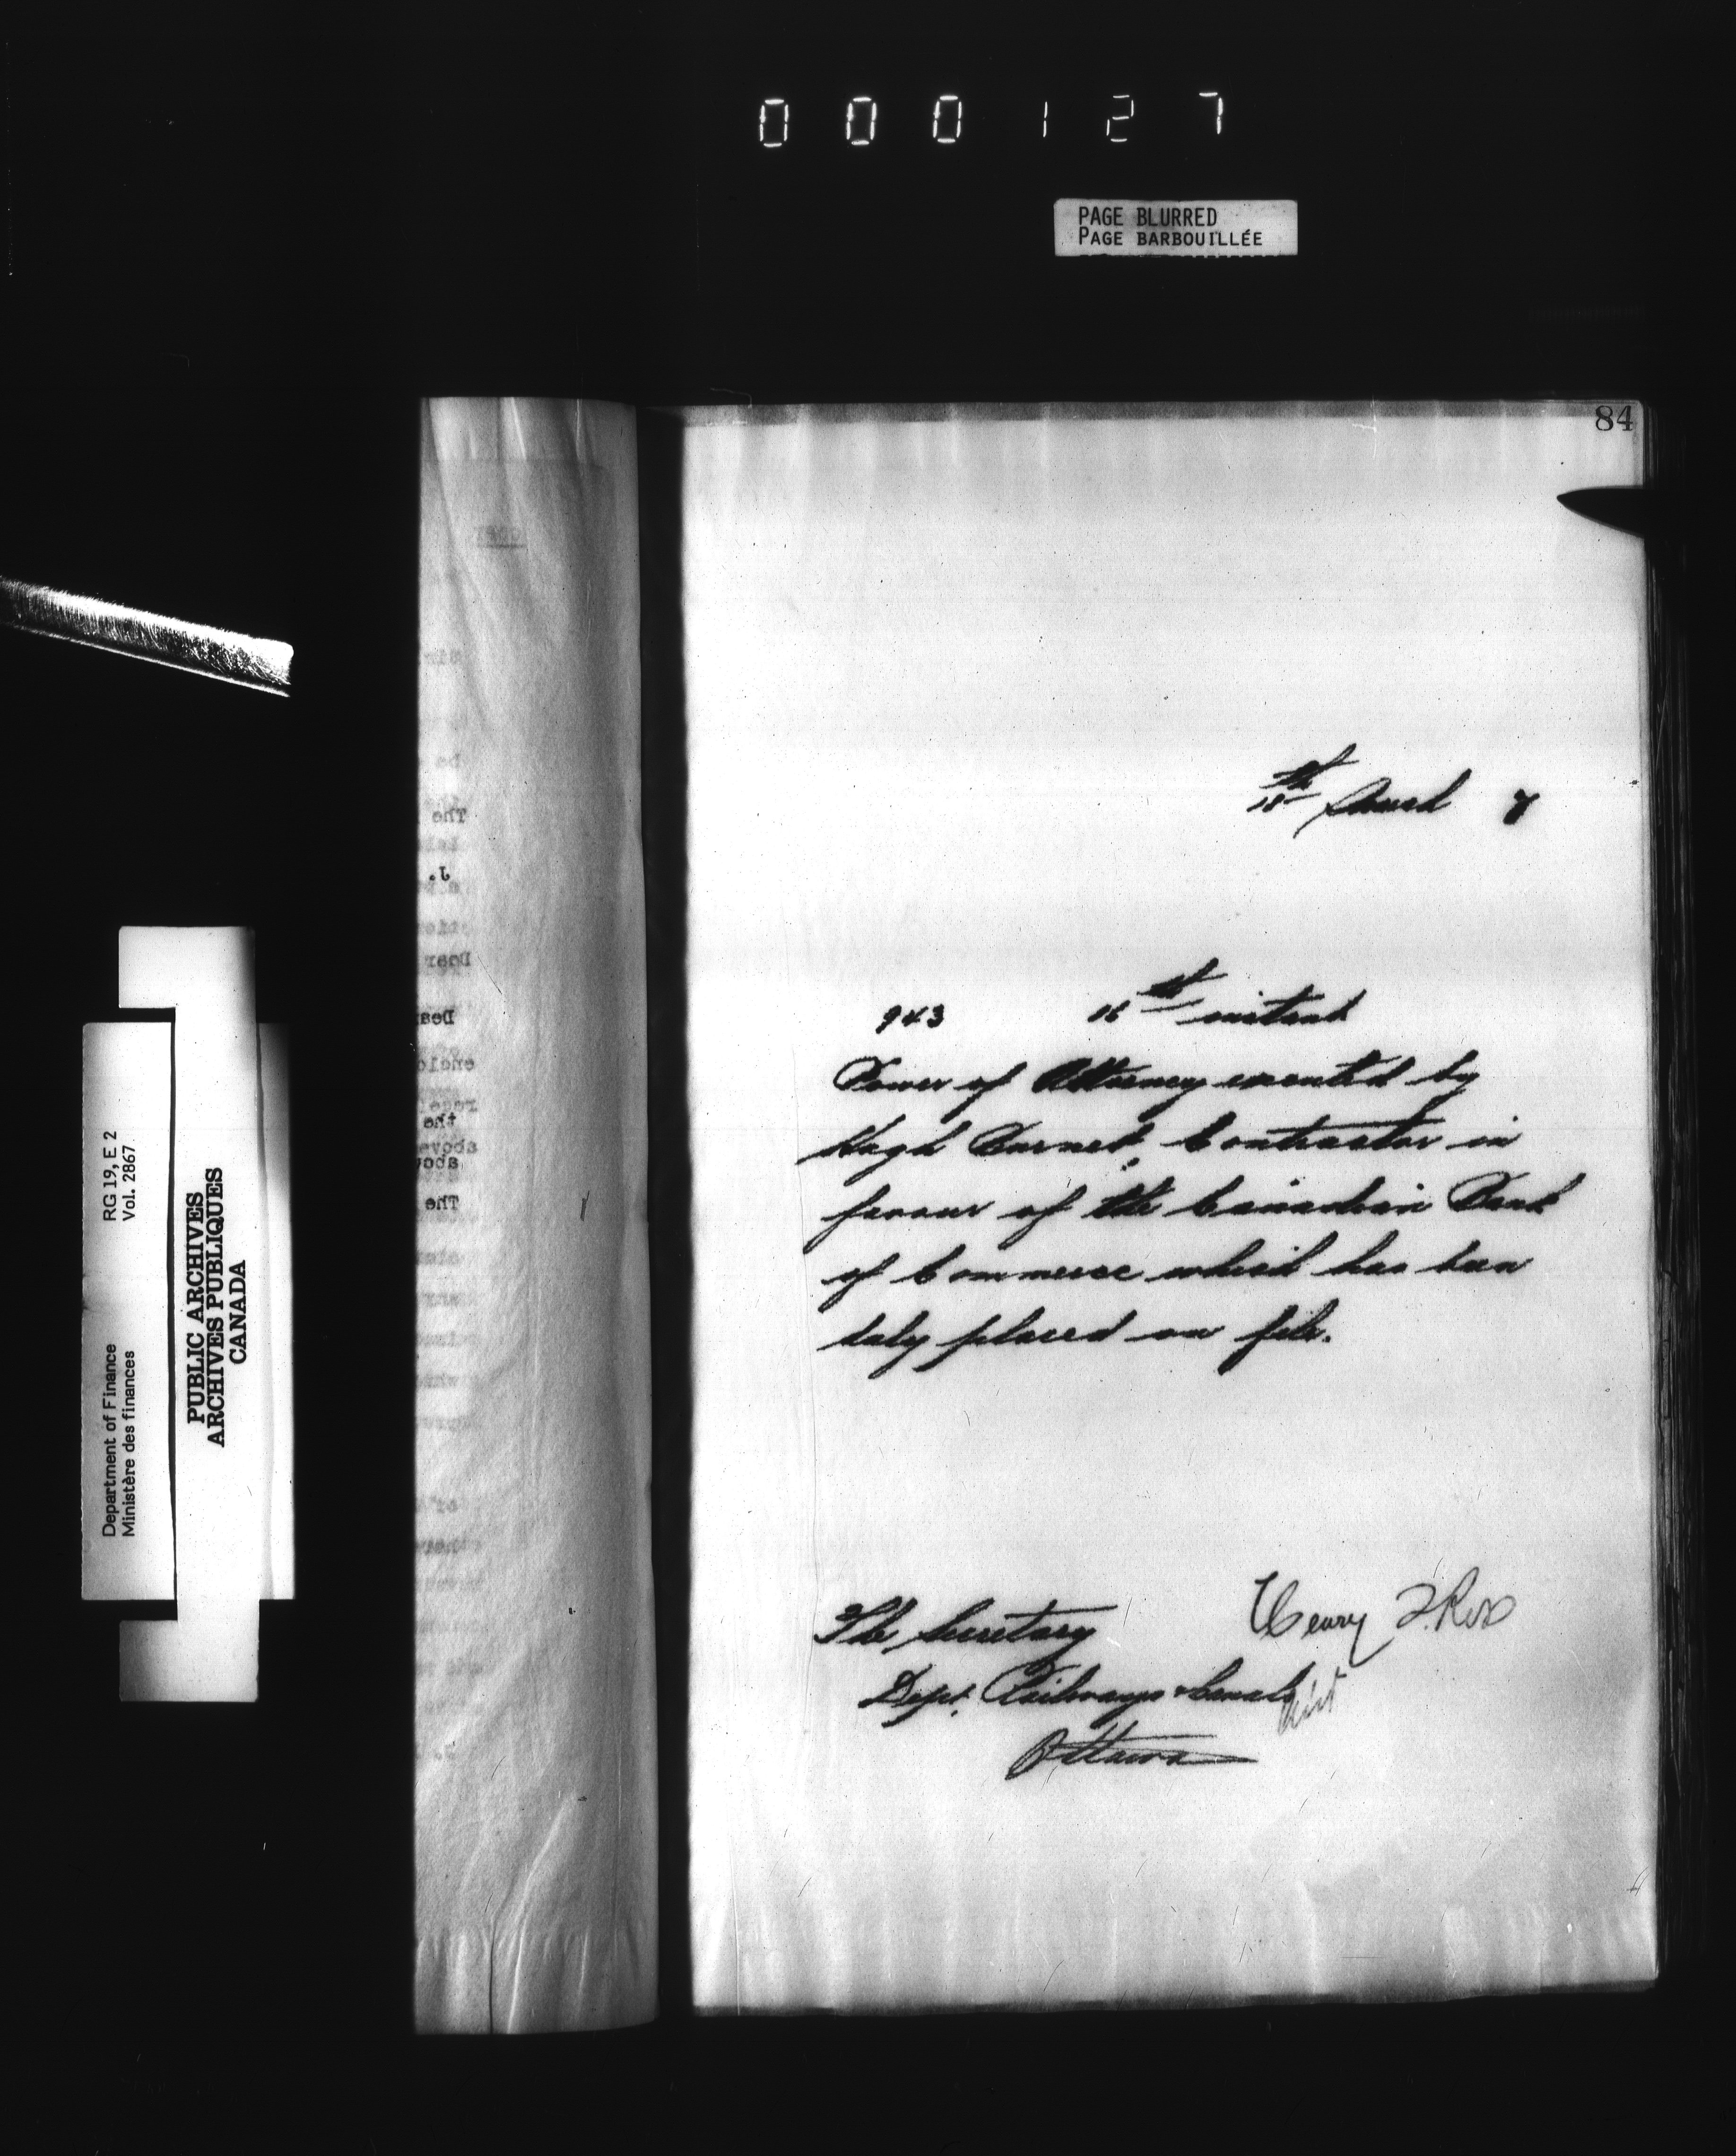 000127
PAGE BLURRED
PAGE BARBOUILLÉE
84
18th March 7
943 16th instant
Power of Attorney executed by
Hugh Burnet, Contractor in
favour of the Canadian Bank
of Commerce which has been
duly placed on file.
Henry T. Ross
The Secretary
Dept. Railways & Canals
Ottawa
Department of Finance RG 19, E 2
Ministère des finances Vol. 2867
PUBLIC ARCHIVES
ARCHIVES PUBLIQUES
CANADA
The
J.
Dear
the
The